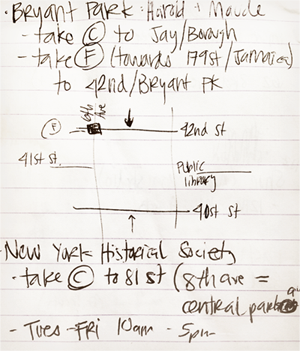 • Bryant Park: Harold + Maude
- take C to Jay/Borough
- take F (towards 179st/Jamaica)
to 42nd/Bryant Pk
6th Ave
F
42nd st
41st st
Public library
40th st
• New York Historical Society
• take C to 81st (8th ave =
central park
- Tues - Fri 10am - 5pm